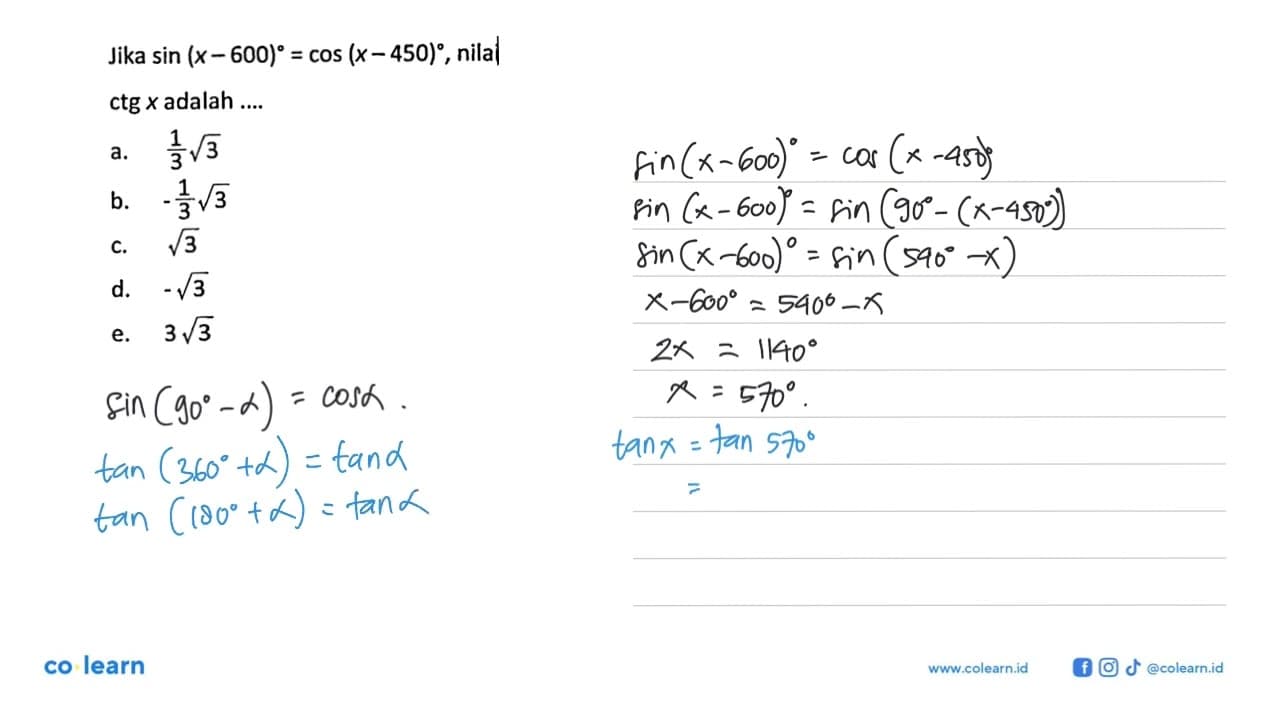 Jika sin (x – 600)° = cos (x – 450)°, nilai
ctg x adalah ....
a. 1/3 √3
b. -1/3 √3
c. √3
d. -√3
e. 3√3
sin (90° - α) = cos α.
tan (360° + α) = tan α
tan (180° + α) = tan α
sin (x - 600)° = cos (x - 450)°
sin (x - 600)° = sin (90° - (x - 450°))
sin (x - 600)° = sin (540° - x)
x - 600° = 540° - x
2x = 1140°
x = 570°.
tan x = tan 570°
=
co learn
www.colearn.id
@colearn.id